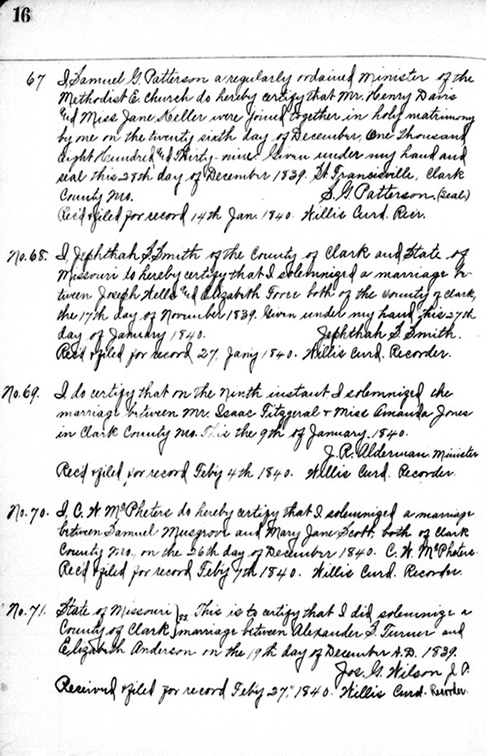 16
67 I, Samuel G. Patterson a regularly ordained Minister of the
Methodist E. Church do hereby certify that Mr. Henry Davis
and Miss Jane Keller were joined together in holy matrimony
by me on the twenty sixth day of December, One thousand
Eight Hundred and Thirty-nine. Given under my hand and
seal this 28th day of December 1839. St. Francisville, Clark
County Mo. S. G. Patterson (Seal)
Rec'd & filed for record 14th Jan. 1840. Willis Curd. Recr.
No. 68. I, Jephthah S. Smith of the County of Clark and State of
Missouri do hereby certify that I solemnized a marriage be-
tween Joseph Wells and Elizabeth Force both of the County of Clark,
the 17th day of November 1839. Given under my hand this 27th
day of January 1840. Jephthah S. Smith.
Rec'd & filed for record 27, Jan'y 1840. Willis Curd. Recorder.
No. 69. I do certify that on the Ninth instant I solemnized the
marriage between Mr. Isaac Fitzgeral & Miss Amanda Jones
in Clark County Mo. This the 9th of January. 1840.
J. R. Alderman. Minister
Rec'd & filed for record Feb'y 4th 1840. Willis Curd. Recorder.
No. 70. I, C. W. McPheters do hereby certify that I solemnized a marriage
between Samuel Musgrove and Mary Jane Scott, both of Clark
County Mo., on the 26th day of December 1840. C. W. McPheters.
Rec'd & filed for record Feb'y 7th 1840. Willis Curd. Recorder.
No. 71. State of Missouri } ss. This is to certify that I did solemnize a
County of Clark } marriage between Alexander S. Turner and
Elizabeth Anderson on the 19th day of December A.D. 1839.
Jos. G. Wilson J. P.
Received & filed for record Feb'y 27" 1840. Willis Curd. Recorder.